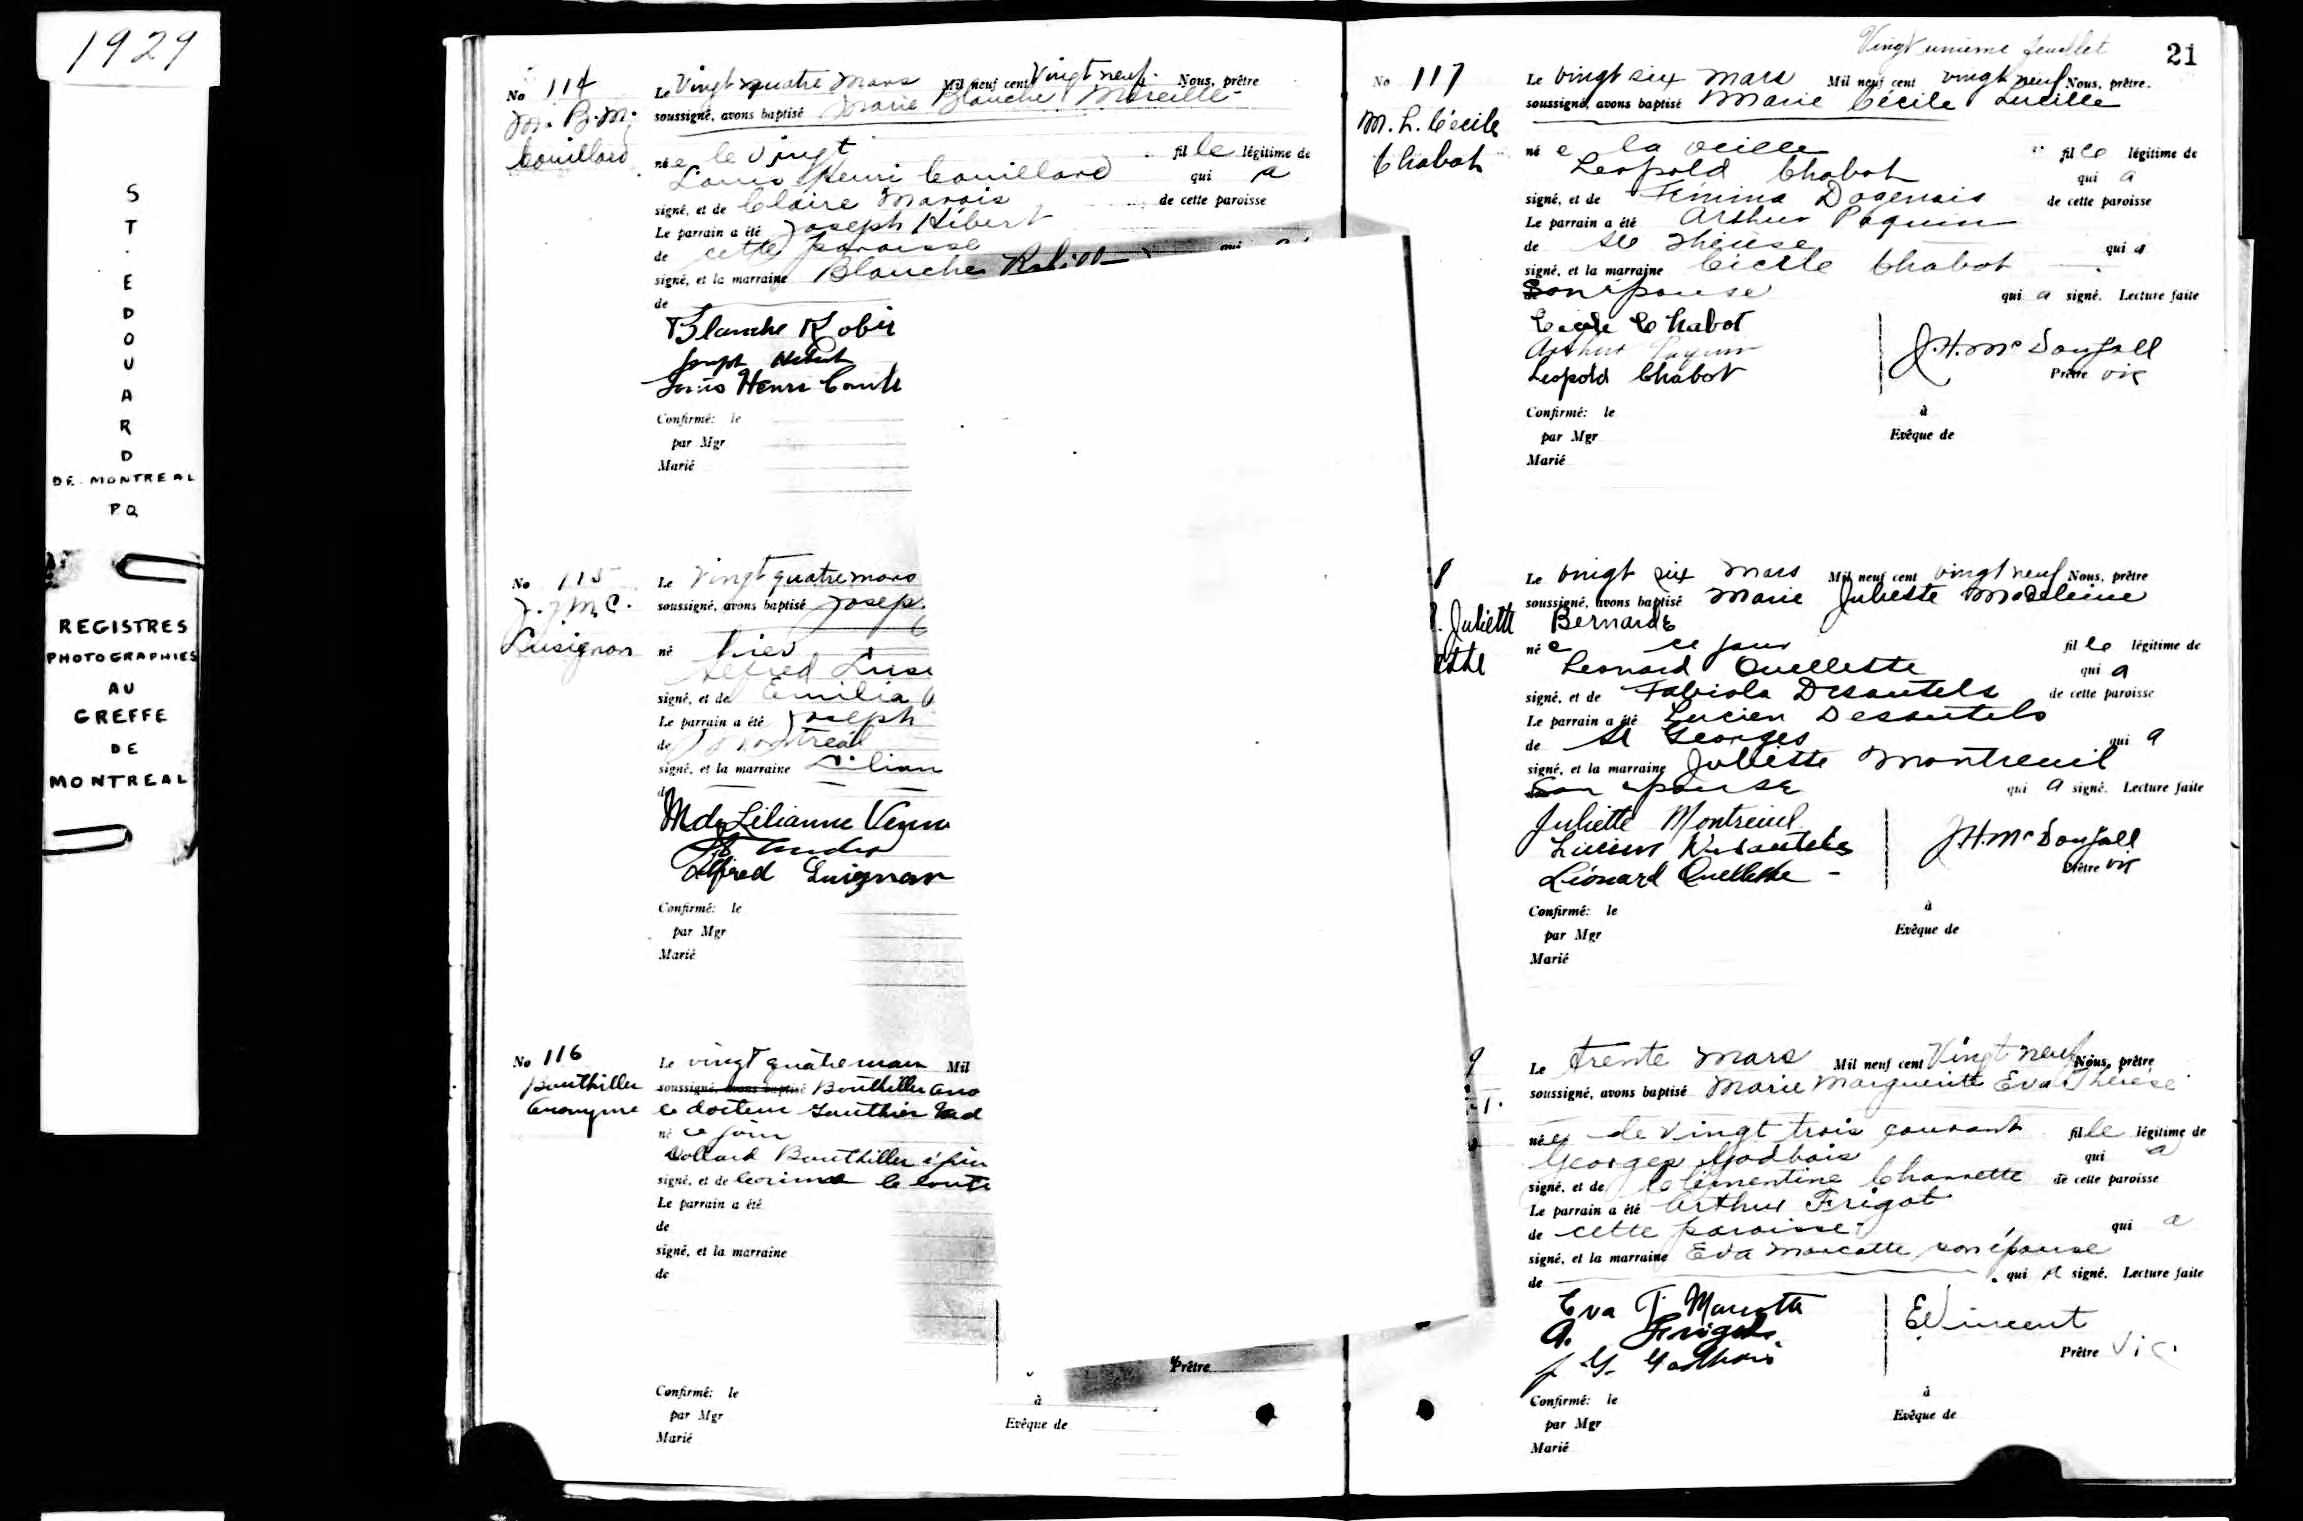 1929
ST. EDOUARD
DE MONTREAL
P Q
REGISTRES
PHOTOGRAPHIES
AU
GREFFE
DE
MONTREAL
No 114
M. B. M.
Couillard
Le Vingt quatre Mars Mil neuf cent Vingt neuf. Nous, prêtre
soussigné, avons baptisé Marie Blanche Mireille
né e le Vingt fille légitime de
Louis Henri Couillard qui a
signé, et de Claire Marois de cette paroisse
Le parrain a été Joseph Hébert
de cette paroisse qui
signé, et la marraine Blanche
de
Blanche
Joseph Hébert
Louis Henri
Confirmé: le
par Mgr
Marié
No 115
J. J. M. C.
Lusignan
Le Vingt quatre mars
soussigné, avons baptisé Josep
né hier
Alfred Lusi
signé, et de Emilia
Le parrain a été Joseph
de Montréal
signé, et la marraine Lilian
de
Lilianne
Alfred
Confirmé: le
par Mgr
Marié
No 116
Bouthiller
Anonyme
Le vingt quatre mars Mil
soussigné, avons baptisé Bouthiller Ano
le docteur Gauthier
né ce jour
Dollard Bouthiller
signé, et de
Le parrain a été
de
signé, et la marraine
de
Prêtre
Confirmé: le à
par Mgr Evêque de
Marié
Vingt unieme feuillet 21
No 117
M. L. Cécile
Chabot
Le vingt six mars Mil neuf cent vingt neuf Nous, prêtre.
soussigné, avons baptisé Marie Cécile Lucille
né e la veille fille légitime de
Leopold Chabot qui a
signé, et de Fémina Dagenais de cette paroisse
Le parrain a été Arthur Paquin
de Ste Thérèse qui a
signé, et la marraine Cécile Chabot
Son épouse qui a signé. Lecture faite
Cécile Chabot
Arthur Paquin
Leopold Chabot
J. H. McDougall
Prêtre vic
Confirmé: le à
par Mgr Evêque de
Marié
8
Juliette
ette
Le vingt six mars Mil neuf cent vingt neuf Nous, prêtre
soussigné, avons baptisé Marie Juliette Madeleine
Bernard
né e ce jour fille légitime de
Leonard Ouellette qui a
signé, et de Fabiola Desautels de cette paroisse
Le parrain a été Lucien Desautels
de St Georges qui a
signé, et la marraine Juliette Montreuil
Son épouse qui a signé. Lecture faite
Juliette Montreuil
Lucien Desautels
Léonard Ouellette
J. H. McDougall
Prêtre vic
Confirmé: le à
par Mgr Evêque de
Marié
9
Le trente mars Mil neuf cent Vingt neuf Nous, prêtre
soussigné, avons baptisé Marie Marguerite Eva Thérèse
née le vingt trois courant fille légitime de
Georges Godbois qui a
signé, et de Clémentine Charrette de cette paroisse
Le parrain a été Arthur Frigot
de cette paroisse qui a
signé, et la marraine Eva Marcotte son épouse
de qui a signé. Lecture faite
Eva T. Marcotte
A. Frigot
J G. Godbois
E Vincent
Prêtre Vic.
Confirmé: le à
par Mgr Evêque de
Marié